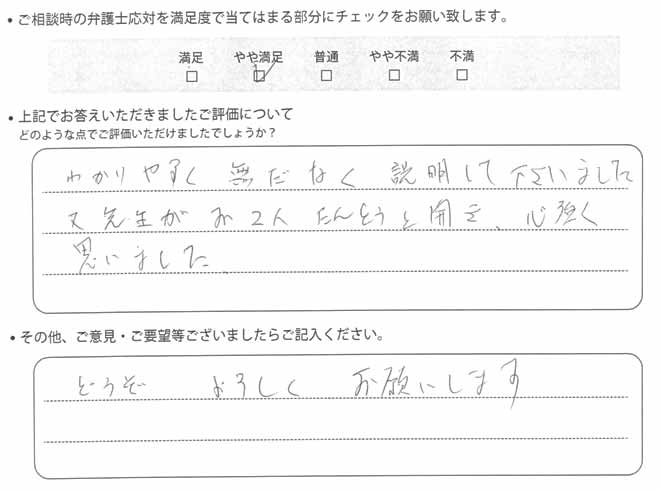 • ご相談時の弁護士応対を満足度で当てはまる部分にチェックをお願い致します。
満足 やや満足 普通 やや不満 不満
□ ☑ □ □ □
• 上記でお答えいただきましたご評価について
どのような点でご評価いただけましたでしょうか？
わかりやすく 無だなく 説明して下さいました
又先生がお2人たんとうと聞き、心強く
思いました。
• その他、ご意見・ご要望等ございましたらご記入ください。
どうぞ よろしく お願いします